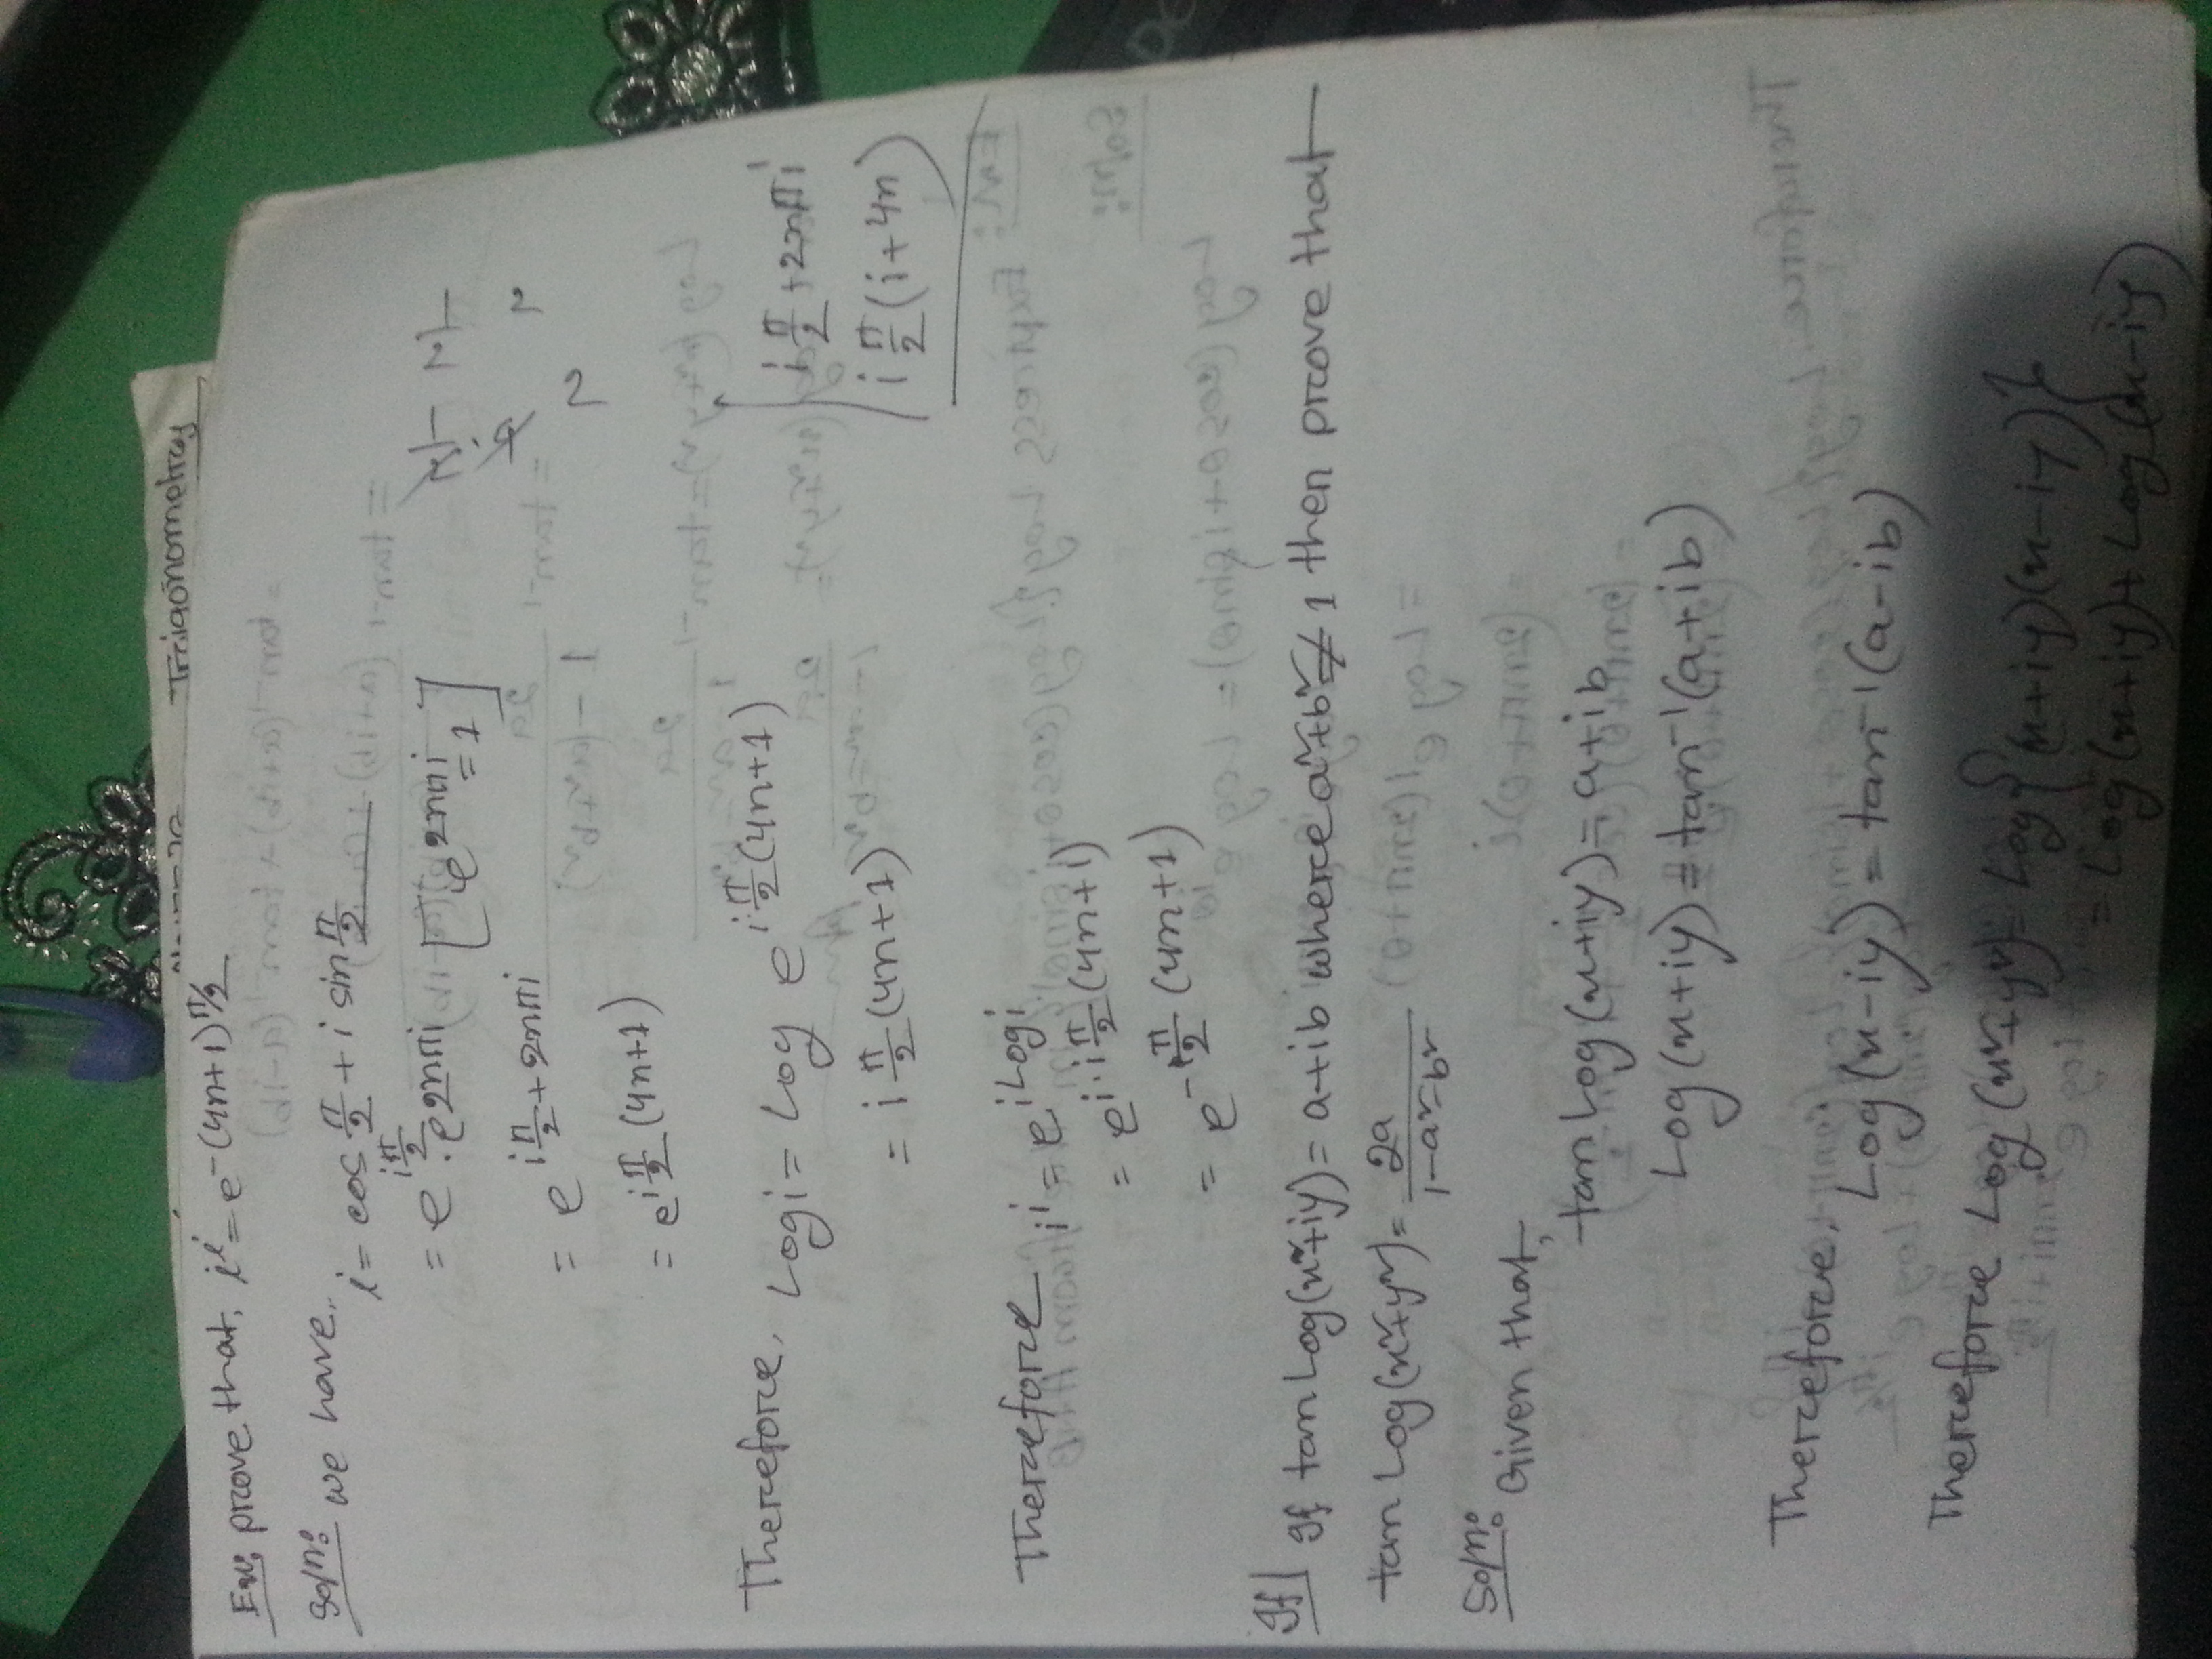 Trigonometry
Ex: prove that, i^i = e^-(4n+1)π/2
Soln: we have,
i = cos π/2 + i sin π/2
= e^iπ/2 . e^2nπi [e^2nπi = 1]
= e^iπ/2 + 2nπi
= e^iπ/2 (4n+1)
Therefore, Log i = Log e^iπ/2(4n+1)
= i π/2 (4n+1)
i π/2 + 2nπi
i π/2 (i+4n)
Therefore i^i = e^iLogi
= e^i.iπ/2 (4n+1)
= e^-π/2 (4n+1)
If| If tan Log(x²+iy) = a+ib where a²+b² ≠ 1 then prove that
tan Log(x²+y²) = 2a / 1-a²-b²
Soln: Given that,
tan Log(x+iy) = a+ib
Log(x+iy) = tan⁻¹(a+ib)
Therefore,
Log(x-iy) = tan⁻¹(a-ib)
Therefore Log(x²+y²) = Log{(x+iy)(x-iy)}
= Log(x+iy) + Log(x-iy)